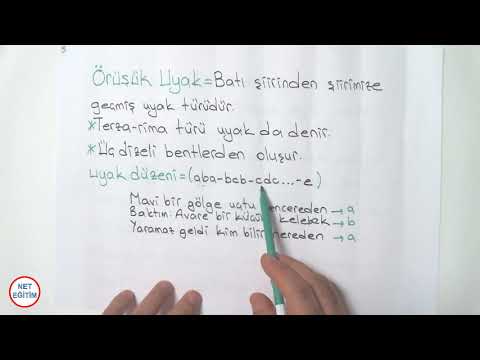 Örüşük Uyak = Batı şiirinden şiirimize
geçmiş uyak türüdür.
*Terza-rima türü uyak da denir.
*Üç dizeli bentlerden oluşur.
uyak düzeni=(aba-bcb-cdc...-e)
Mavi bir gölge uçtu encereden → a
Baktım: Avare bir küçük kelebek → b
Yaramaz geldi kim bilir nereden → a
NET
EĞİTİM